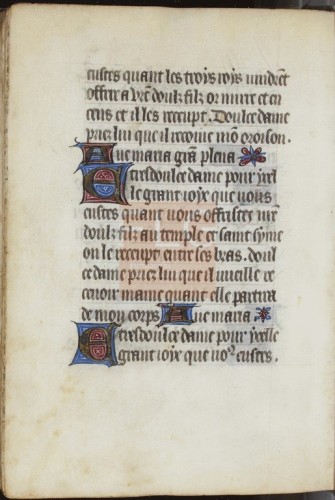 eustes quant les troys roys vindrēt
offrir a vr̄e doulz filz or mirre et en
cens et il les receupt. Doulce dame
priez lui que il recoiue mō oroison.
Aue maria grā plena
E tresdoulce dame pour ycel
le grant ioye que vous
eustes quant vous offristes vr̄e
doulz filz au temple et saint syme
on le receupt entre ses bras. doul
ce dame priez lui que il vueille re
ceuoir mame quant elle partira
de mon corps Aue maria
E tresdoulce dame pour ycelle
grant ioye que vo⁹ eustes.